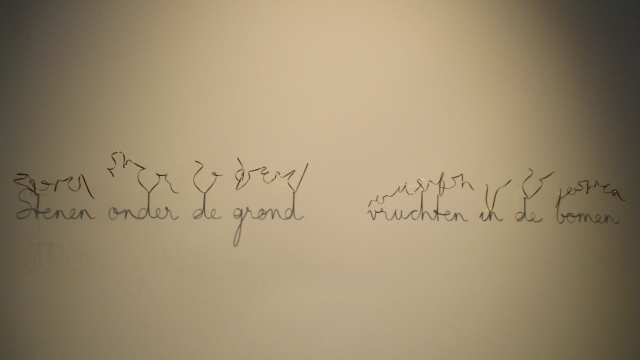 Stenen onder de grond vruchten in de bomen